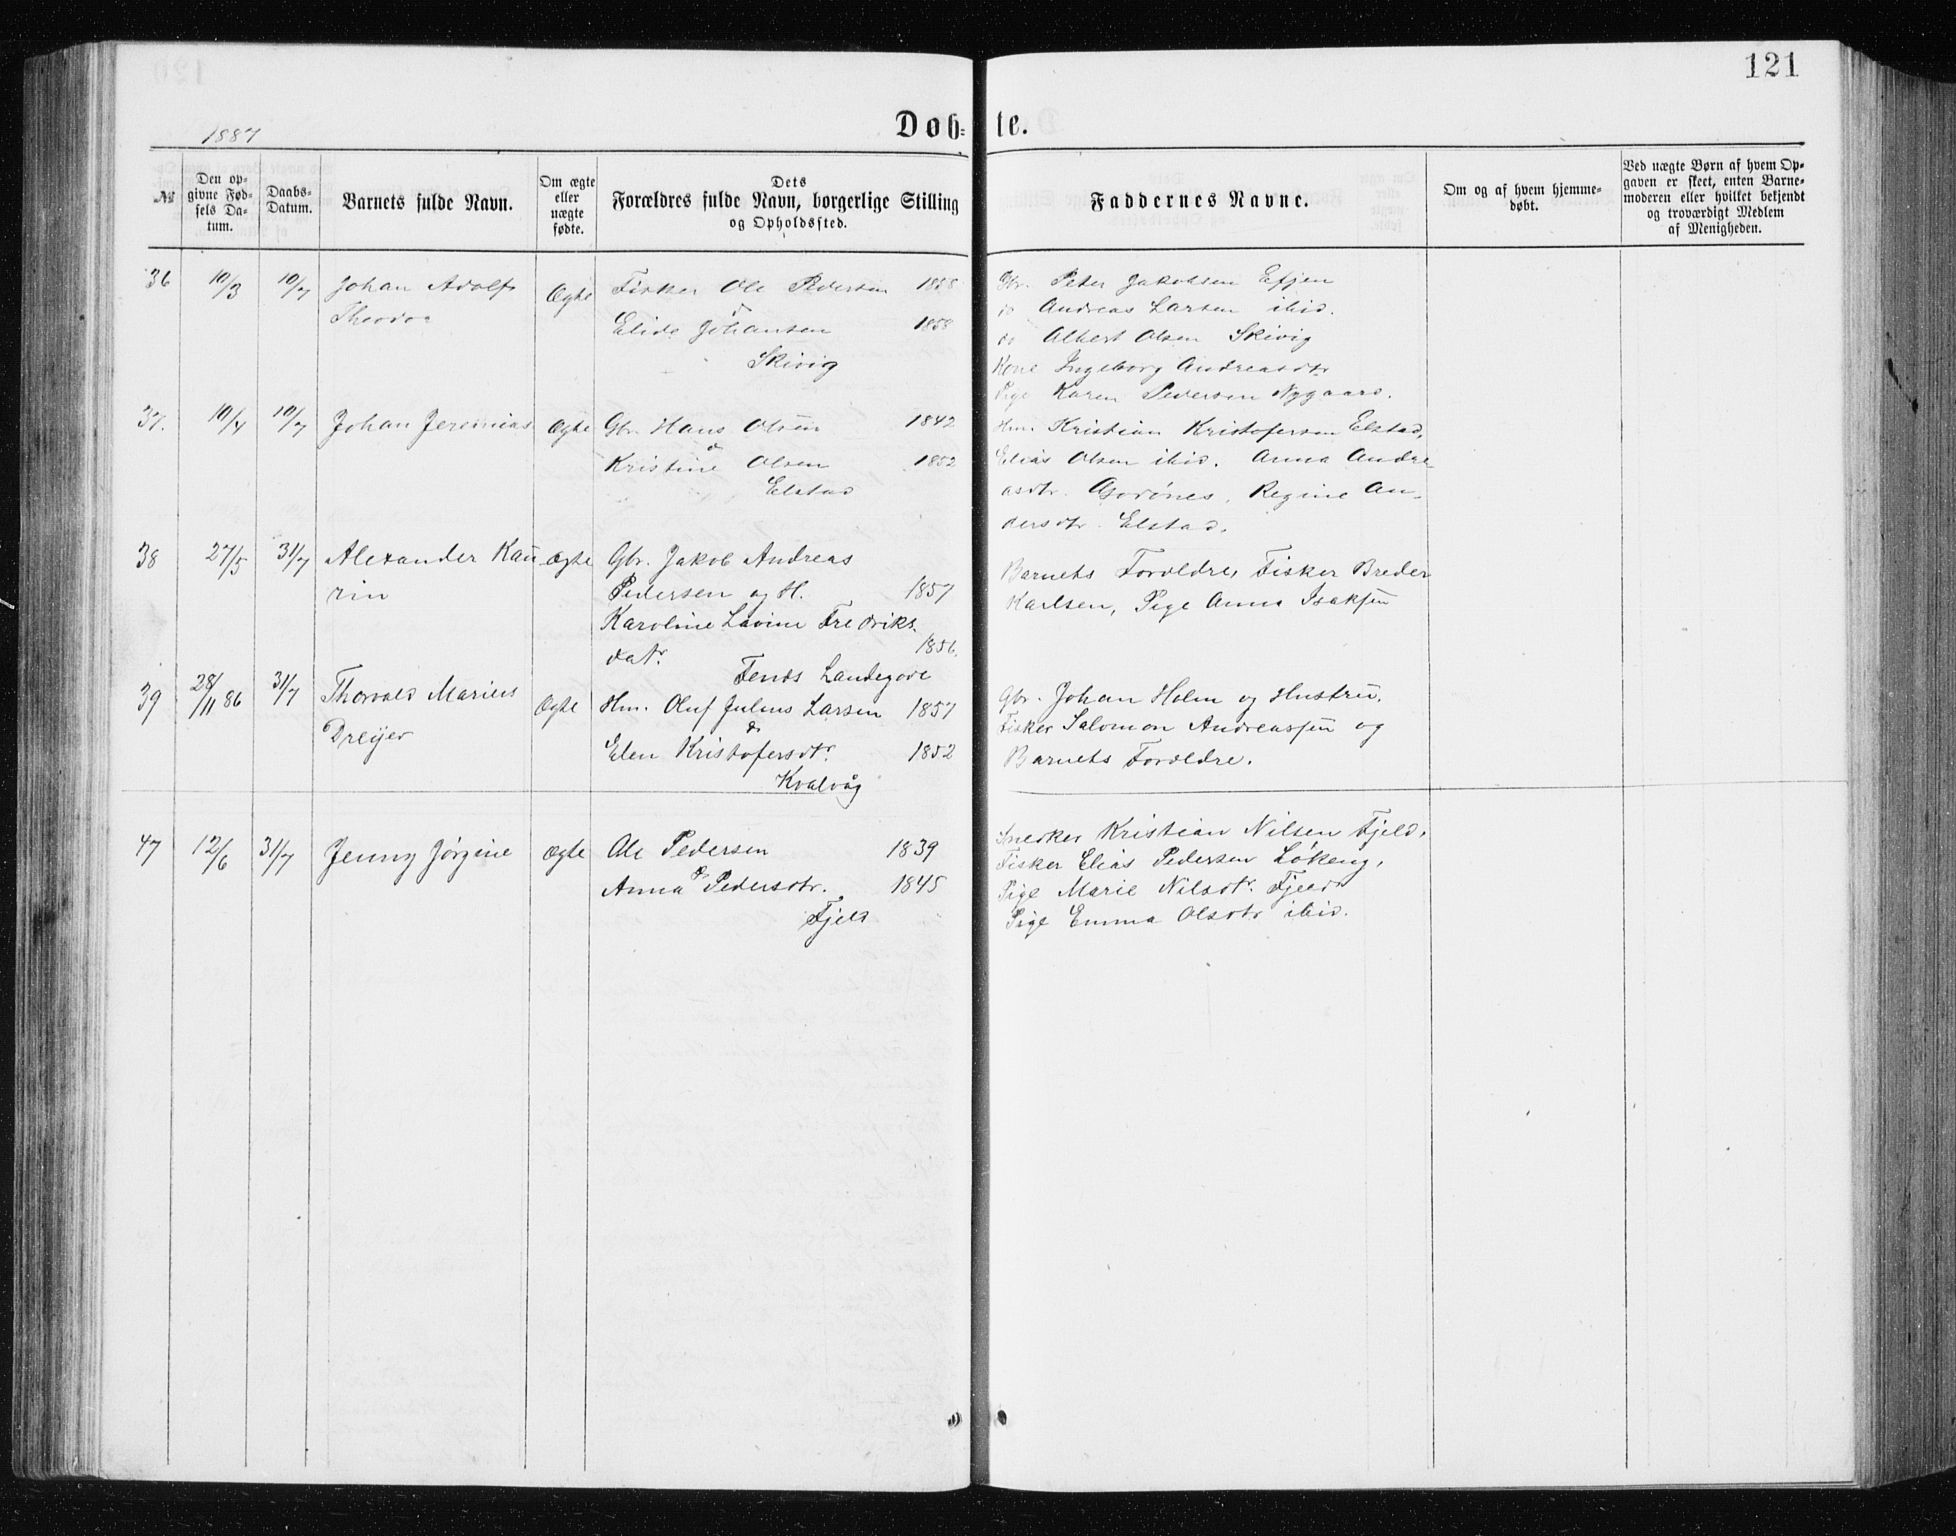 121
1887
Døb- te.
№
Den op-
givne Fød-
sels Da-
tum.
Daabs-
Datum.
Barnets fulde Navn.
Om ægte
eller
uægte
fødte.
Dets
Forældres fulde Navn, borgerlige Stilling
og Opholdssted.
Faddernes Navne.
Om og af hvem hjemme-
døbt.
Ved uægte Børn af hvem Op-
gaven er skeet, enten Barne-
moderen eller hvilket bekjendt
og troværdigt Medlem
af Menigheden.
36 10/3 10/7 Johan Adolf Ægte Fisker Ole Pedersen 1858
Theodor
Elide Johansen 1858
Skivig
Gbr. Peter Jakobsen Efjen
do Andreas Larsen ibid.
do Albert Olsen Skivig
Kone Ingeborg Andreasdtr
Pige Karen Pedersen Nygaard.
37. 10/4 10/7 Johan Jeremias Ægte Gbr. Hans Olsen 1842
Kristine Olsen 1852
Elstad
Hm. Kristian Kristofersen Elstad,
Elias Olsen ibid. Anna Andre-
asdtr. Regine An-
dersdtr. Elstad.
38 27/5 31/7 Alexander Kau Ægte Gbr. Jakob Andreas
rin Pedersen og H. 1857
Karoline Lavine Fredriks.
datr. 1856.
Landegode
Barnets Forældre, Fisker Breder
Karlsen, Pige Anna Isaksen
39 28/11 86 31/7 Thorvald Marius Ægte Hm. Oluf Julius Larsen 1857
Dreyer
Elen Kristofersdtr. 1852
Kvalvåg
Gbr. Johan Holm og Hustru.
Fisker Salomon Andreassen og
Barnets Forældre.
47 12/6 31/7 Jenny Jørgine Ægte Ole Pedersen 1839
Anna Pedersdtr. 1845
Fjeld
Snedker Kristian Nilsen Fjeld,
Fisker Elias Pedersen Løkeng,
Pige Marie Nilsdtr. Fjeld
Pige Emma Olsdtr ibid.